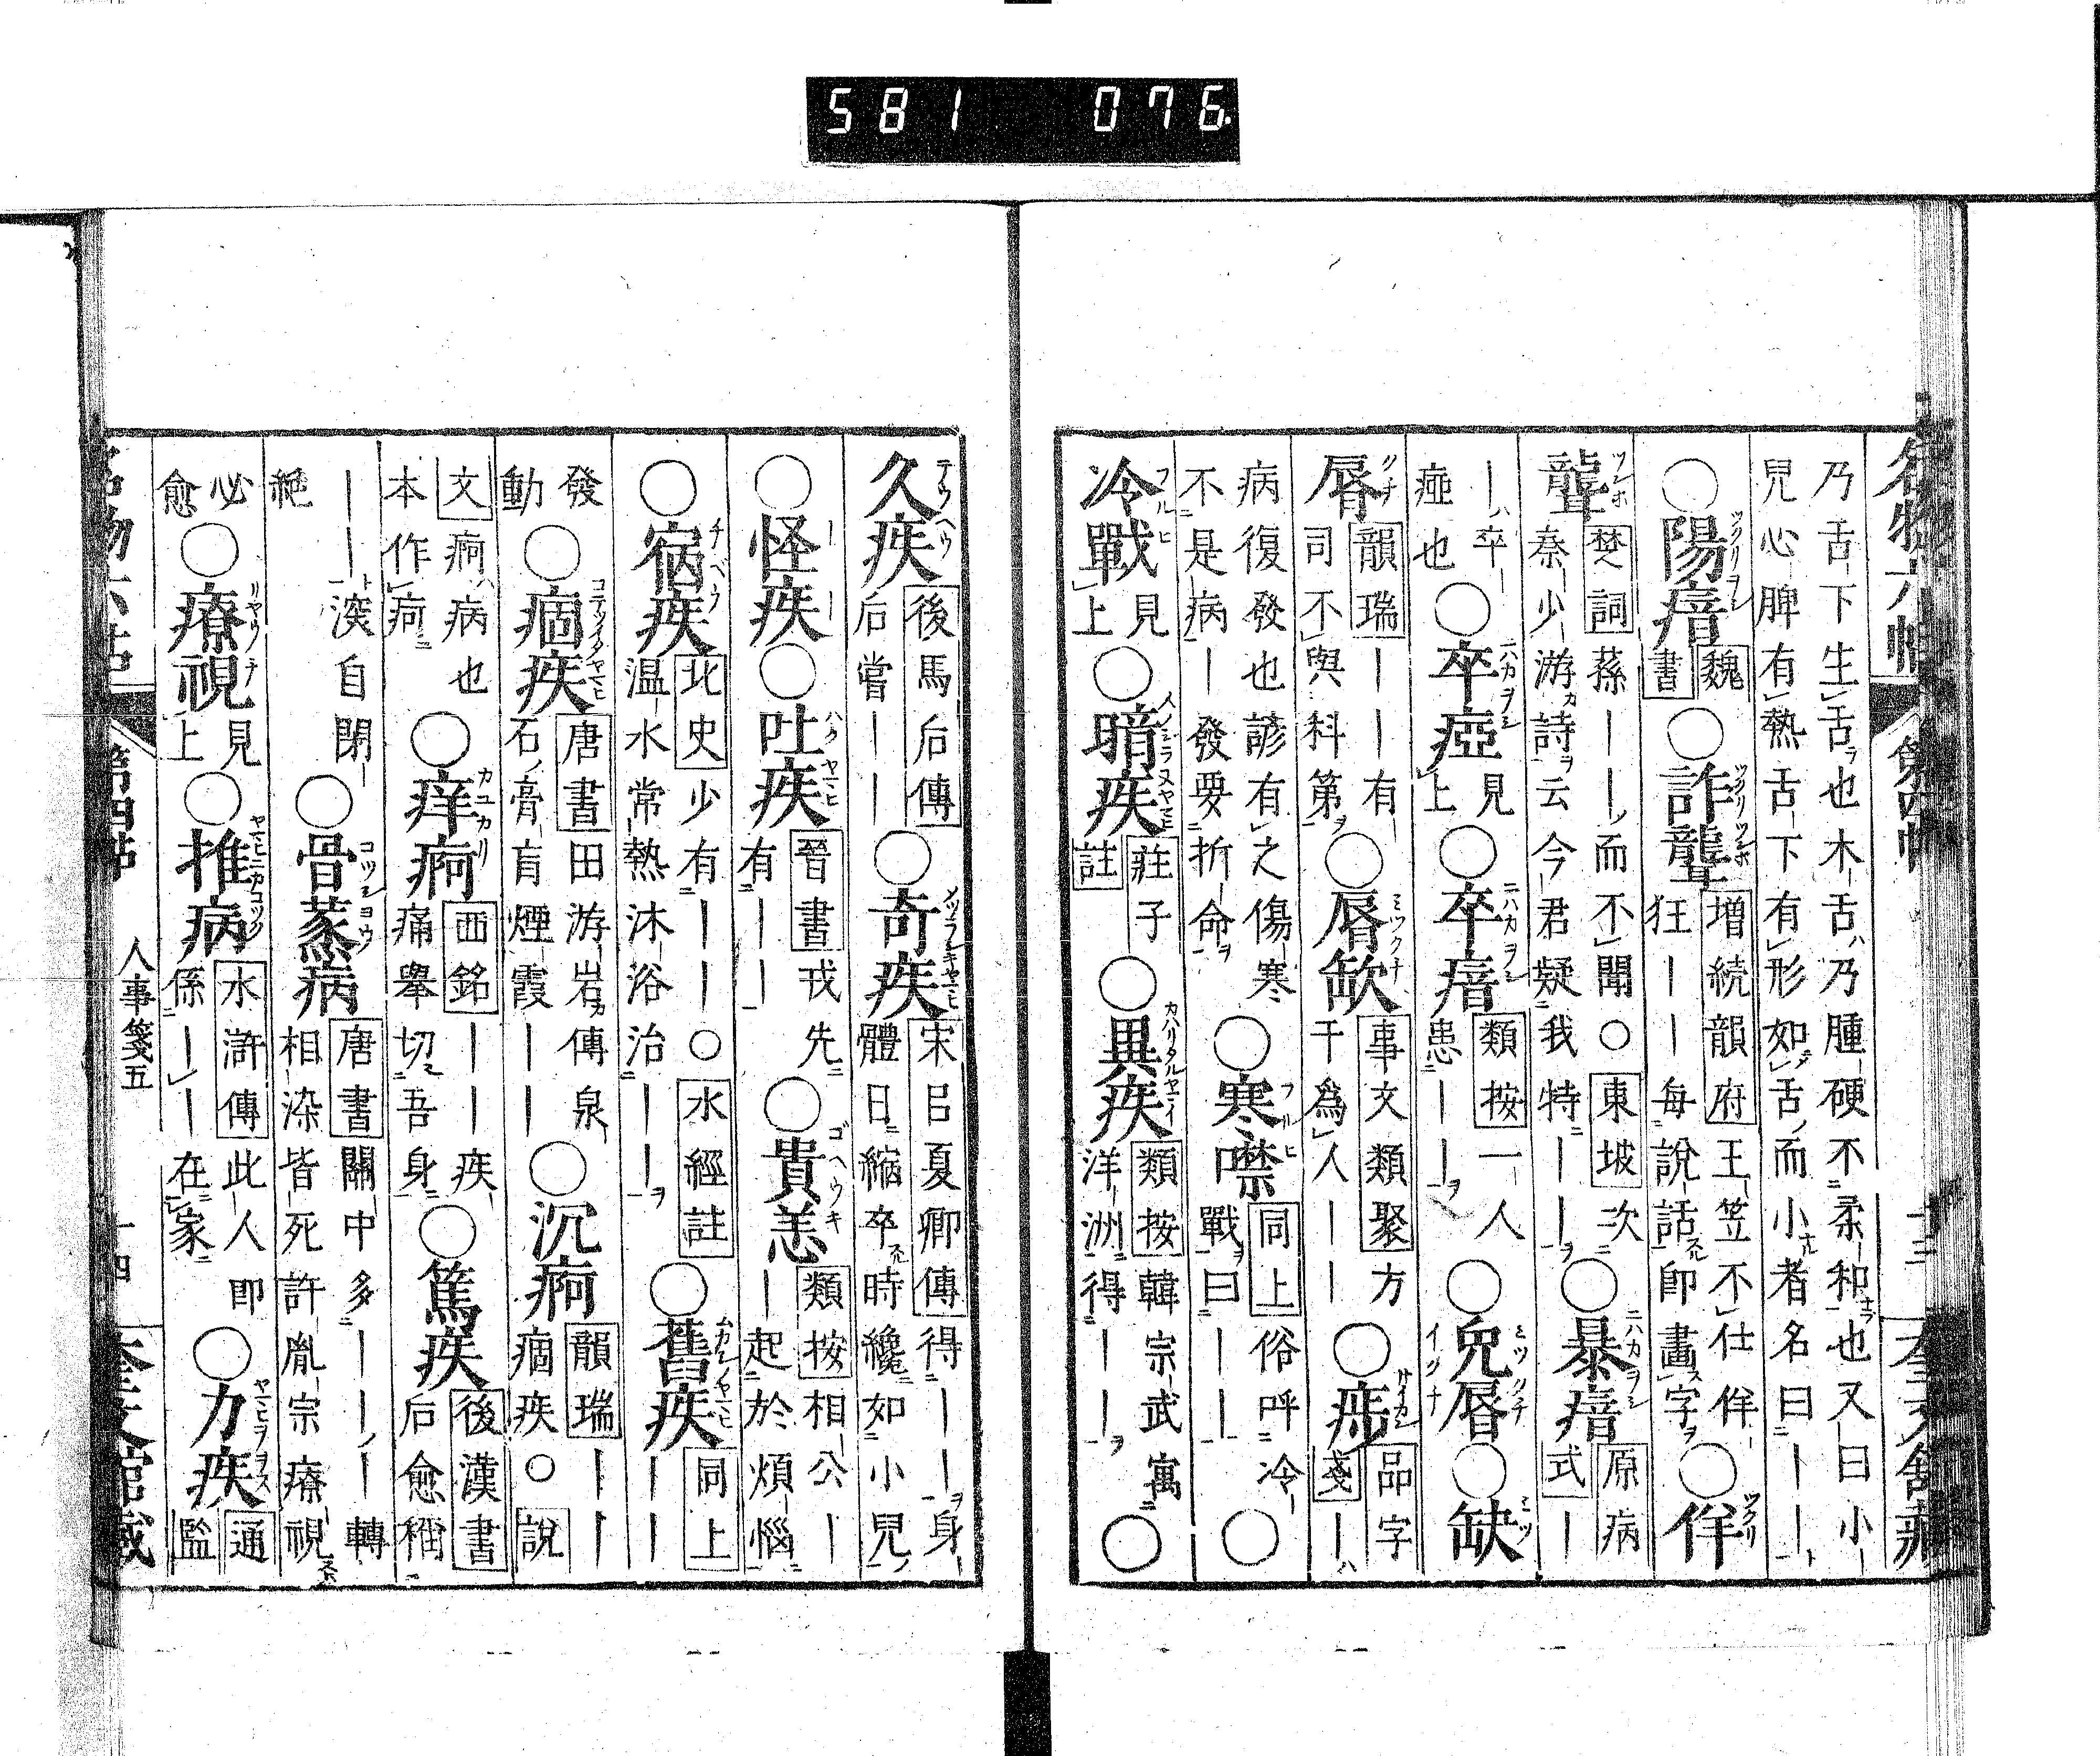 581 076
名物六帖 第四帖 十三 奎文館藏
乃舌下生舌也木舌乃腫硬不柔和也又曰小
兒心脾有熱舌下有形如舌而小者名曰――
○陽瘖 魏書 ○詐聾 増続韻府 王笠不仕佯狂――每說話即畫字 ○佯
聾 焚詞 蓀――而不聞○東坡次秦少游詩云今君疑我特―― ○暴瘖 原病式 ―
―卒瘂也 ○卒瘂 見上 ○卒瘖 類按 一人患―― ○兔脣 ○缺
脣 韻瑞 ――有司不與科第 ○脣缺 事文類聚 方干為人―― ○痧 品字箋 ―
病復發也諺有之傷寒不是病―發要折命 ○寒噤 同上 俗呼冷戰曰―― ○
冷戰 見上 ○暗疾 莊子註 ○異疾 類按 韓宗武寓洋洲得―― ○
久疾 後馬后傳 后嘗―― ○奇疾 宋呂夏卿傳 得――身體日縮卒時纔如小兒
○怪疾 ○吐疾 晉書 戎先有―― ○貴恙 類按 相公―― 起於煩惱
○宿疾 北史 少有――○水經註 温水常熱沐浴治―― ○舊疾 同上 ――
發動 ○痼疾 唐書 田游岩傳 泉石膏肓煙霞―― ○沉痾 韻瑞 ――痼疾○說
文 痾病也本作疴 ○痒痾 西銘 ――疾痛舉切吾身 ○篤疾 後漢書 后愈稱
――渓自閉絕 ○骨蒸病 唐書 關中多―――轉相染皆死許胤宗療視
必愈 ○療視 見上 ○推病 水滸傳 此人即係――在家 ○力疾 通監
名物六帖 第四帖 人事箋五 十四 奎文館藏